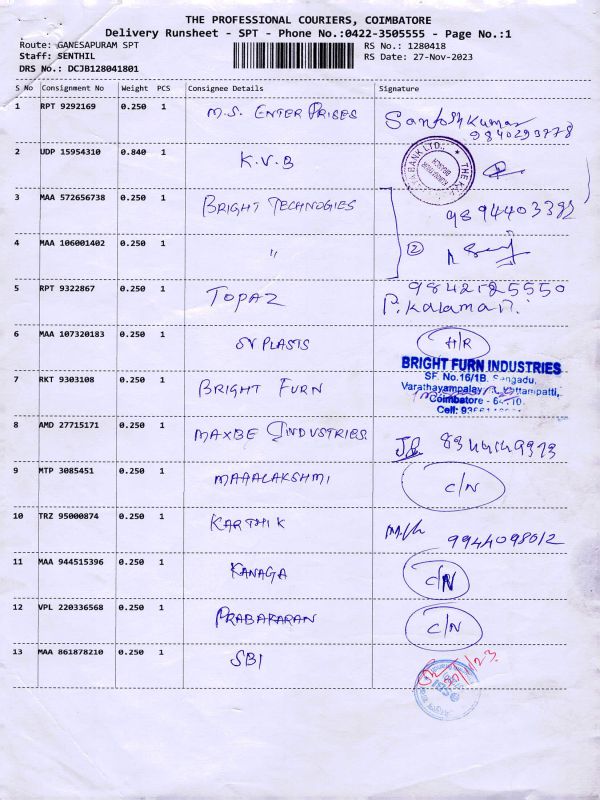 THE PROFESSIONAL COURIERS, COIMBATORE
Delivery Runsheet - SPT - Phone No.:0422-3505555 - Page No.:1
Route: GANESAPURAM SPT
RS No.: 1280418
Staff: SENTHIL
RS Date: 27-Nov-2023
DRS No.: DCJB128041801
S No Consignment No Weight PCS Consignee Details Signature
1 RPT 9292169 0.250 1 M.S. ENTERPRISES Santosh Kumar
9840293778
2 UDP 15954310 0.840 1 K.V.B
BANK LTD.
3 MAA 572656738 0.250 1 BRIGHT TECHNOGIES 9894403392
4 MAA 106001402 0.250 1 " 2
5 RPT 9322867 0.250 1 TOPAZ 9842125550
P. Kalamani.
6 MAA 107320183 0.250 1 SV PLASTS H/R
BRIGHT FURN INDUSTRIES
SF. No.16/1B,
7 RKT 9303108 0.250 1 BRIGHT FURN Varathayampalayam
Coimbatore -
Cell:
8 AMD 27715171 0.250 1 MAXBE INDUSTRIES
9 MTP 3085451 0.250 1 MAAALAKSHMI C/N
10 TRZ 95000874 0.250 1 KARTHIK
9944098012
11 MAA 944515396 0.250 1 KANAGA C/N
12 VPL 220336568 0.250 1 PRABAKARAN C/N
13 MAA 861878210 0.250 1 SBI